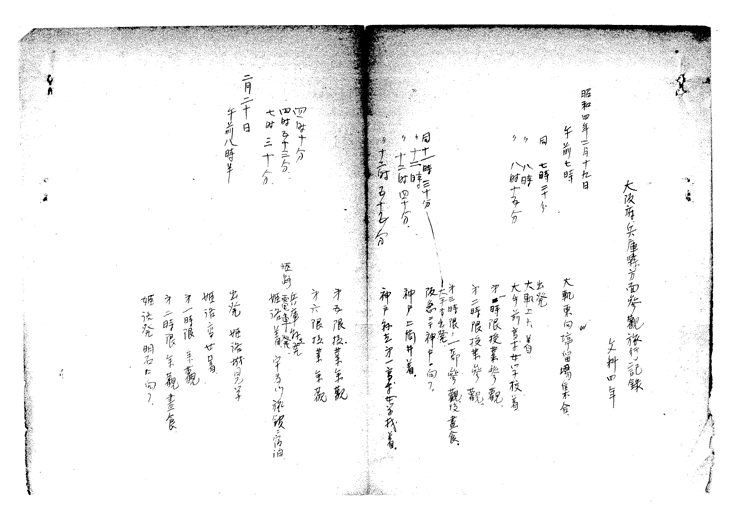 大阪府兵庫県方面参観旅行記録
文科四年
昭和四年二月十九日
午前七時 大軌東向停留場集合
同 七時三十分 出発
〃 八時 大軌上六着
〃 八時十五分 大手前高等女学校着
第一時限授業参観
第二時限授業参観
第三時限一部参観後昼食
同十一時三十分 大手前出発
〃十二時 阪急ニテ神戸ニ向フ
〃 十二時四十分 神戸上筒井着
〃 十二時五十五分 神戸県立第一高等女学校着
第五限授業参観
第六限授業参観
四時十分 兵庫駅発
四時五十二分
七時三十分 姫路着
二月二十日
午前八時半 出発 姫路城見学
姫路高女着
第一時限 参観
第二時限 参観 昼食
姫路発明石ニ向フ